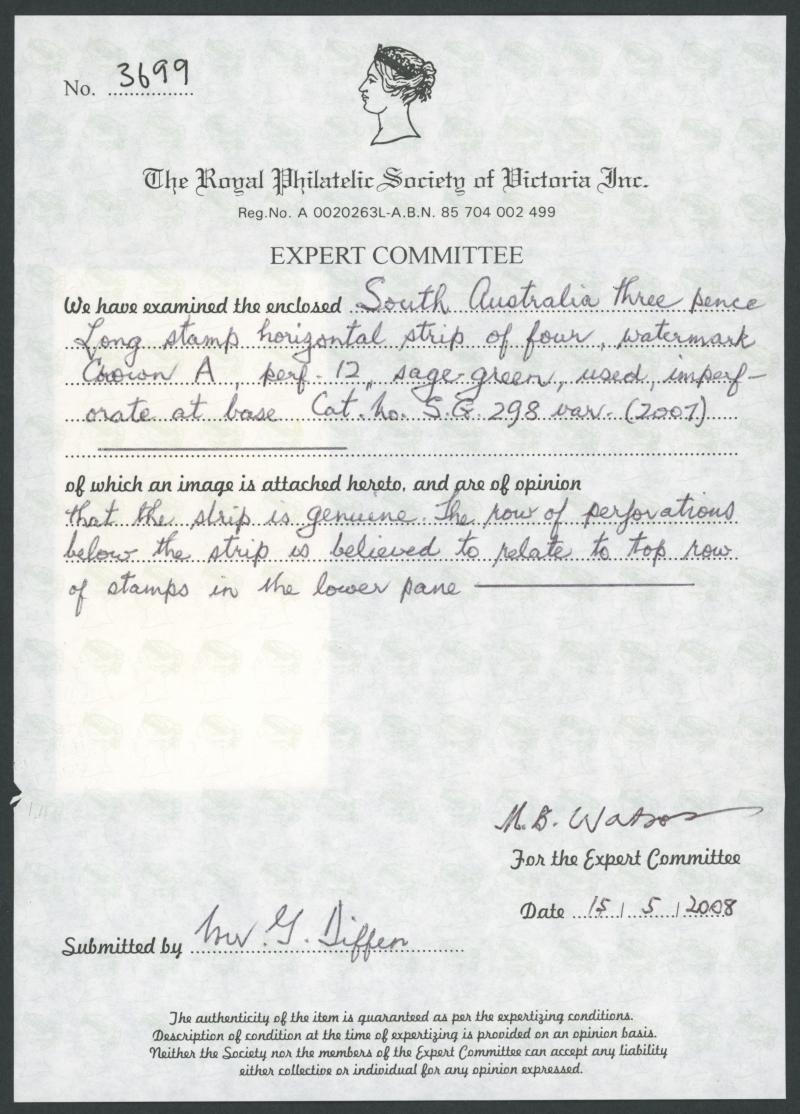 No. 3699
The Royal Philatelic Society of Victoria Inc.
Reg.No. A 0020263L-A.B.N. 85 704 002 499
EXPERT COMMITTEE
We have examined the enclosed South Australia three pence
Long stamp horizontal strip of four, watermark
Crown A, perf. 12, sage-green, used, imperf-
orate at base Cat. no. S.G. 298 var. (2007)
of which an image is attached hereto, and are of opinion
that the strip is genuine. The row of perforations
below the strip is believed to relate to top row
of stamps in the lower pane
M.B. Watson
For the Expert Committee
Date 15/5/2008
Submitted by Mr G. Diffen
The authenticity of the item is guaranteed as per the expertizing conditions.
Description of condition at the time of expertizing is provided on an opinion basis.
Neither the Society nor the members of the Expert Committee can accept any liability
either collective or individual for any opinion expressed.